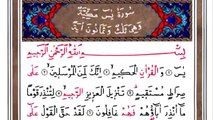 سورة يس مكية
وهي ثلاث وثمانون آية
بِسْمِ اللَّهِ الرَّحْمَٰنِ الرَّحِيمِ
يسٓ ۝ وَالْقُرْآنِ الْحَكِيمِ ۝ إِنَّكَ لَمِنَ الْمُرْسَلِينَ ۝ عَلَىٰ
صِرَاطٍ مُسْتَقِيمٍ ۝ تَنْزِيلَ الْعَزِيزِ الرَّحِيمِ ۝ لِتُنْذِرَ قَوْمًا مَا
أُنْذِرَ آبَاؤُهُمْ فَهُمْ غَافِلُونَ ۝ لَقَدْ حَقَّ الْقَوْلُ عَلَىٰ